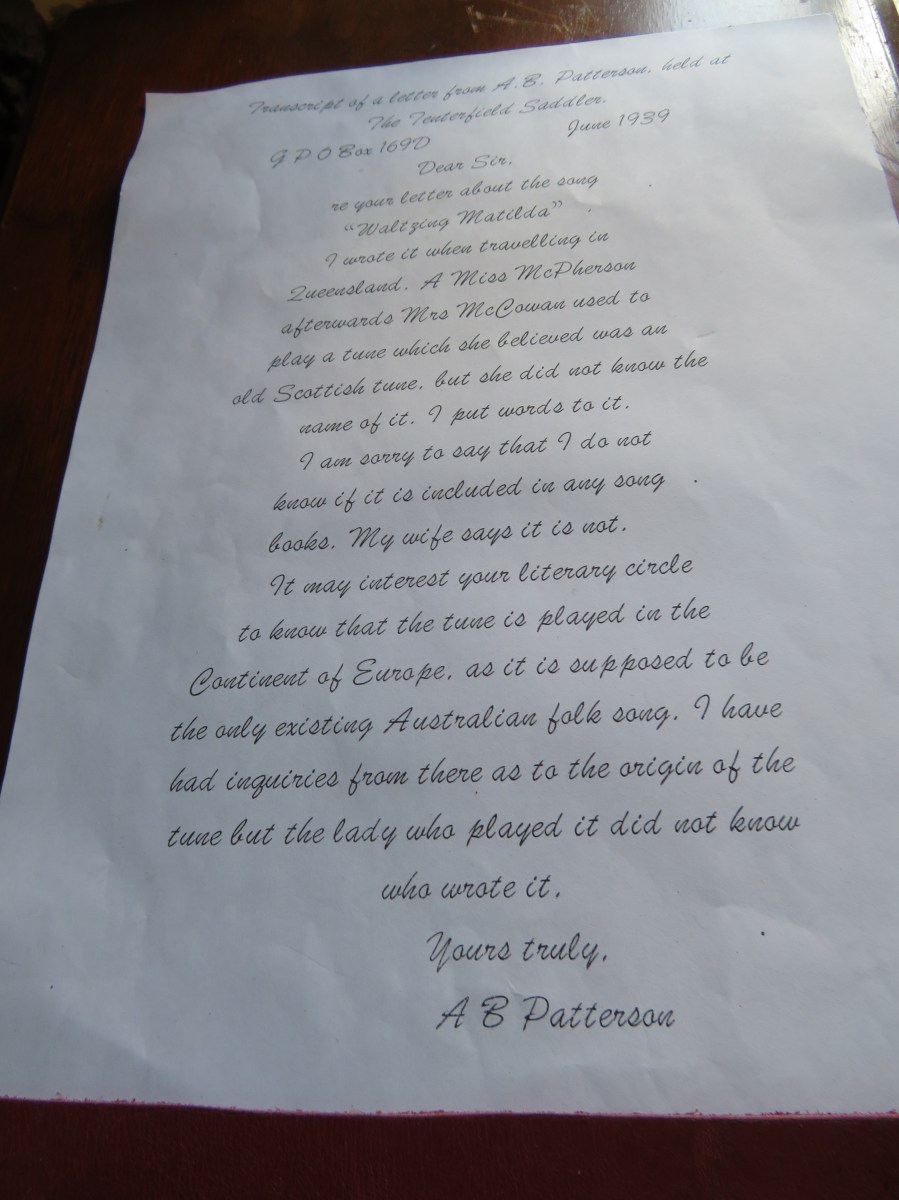 Transcript of a letter from A.B. Patterson, held at
The Tenterfield Saddler.
G P O Box 169D June 1939
Dear Sir,
re your letter about the song
“Waltzing Matilda”
I wrote it when travelling in
Queensland. A Miss McPherson
afterwards Mrs McCowan used to
play a tune which she believed was an
old Scottish tune, but she did not know the
name of it. I put words to it.
I am sorry to say that I do not
know if it is included in any song
books. My wife says it is not.
It may interest your literary circle
to know that the tune is played in the
Continent of Europe, as it is supposed to be
the only existing Australian folk song. I have
had inquiries from there as to the origin of the
tune but the lady who played it did not know
who wrote it.
Yours truly,
A B Patterson